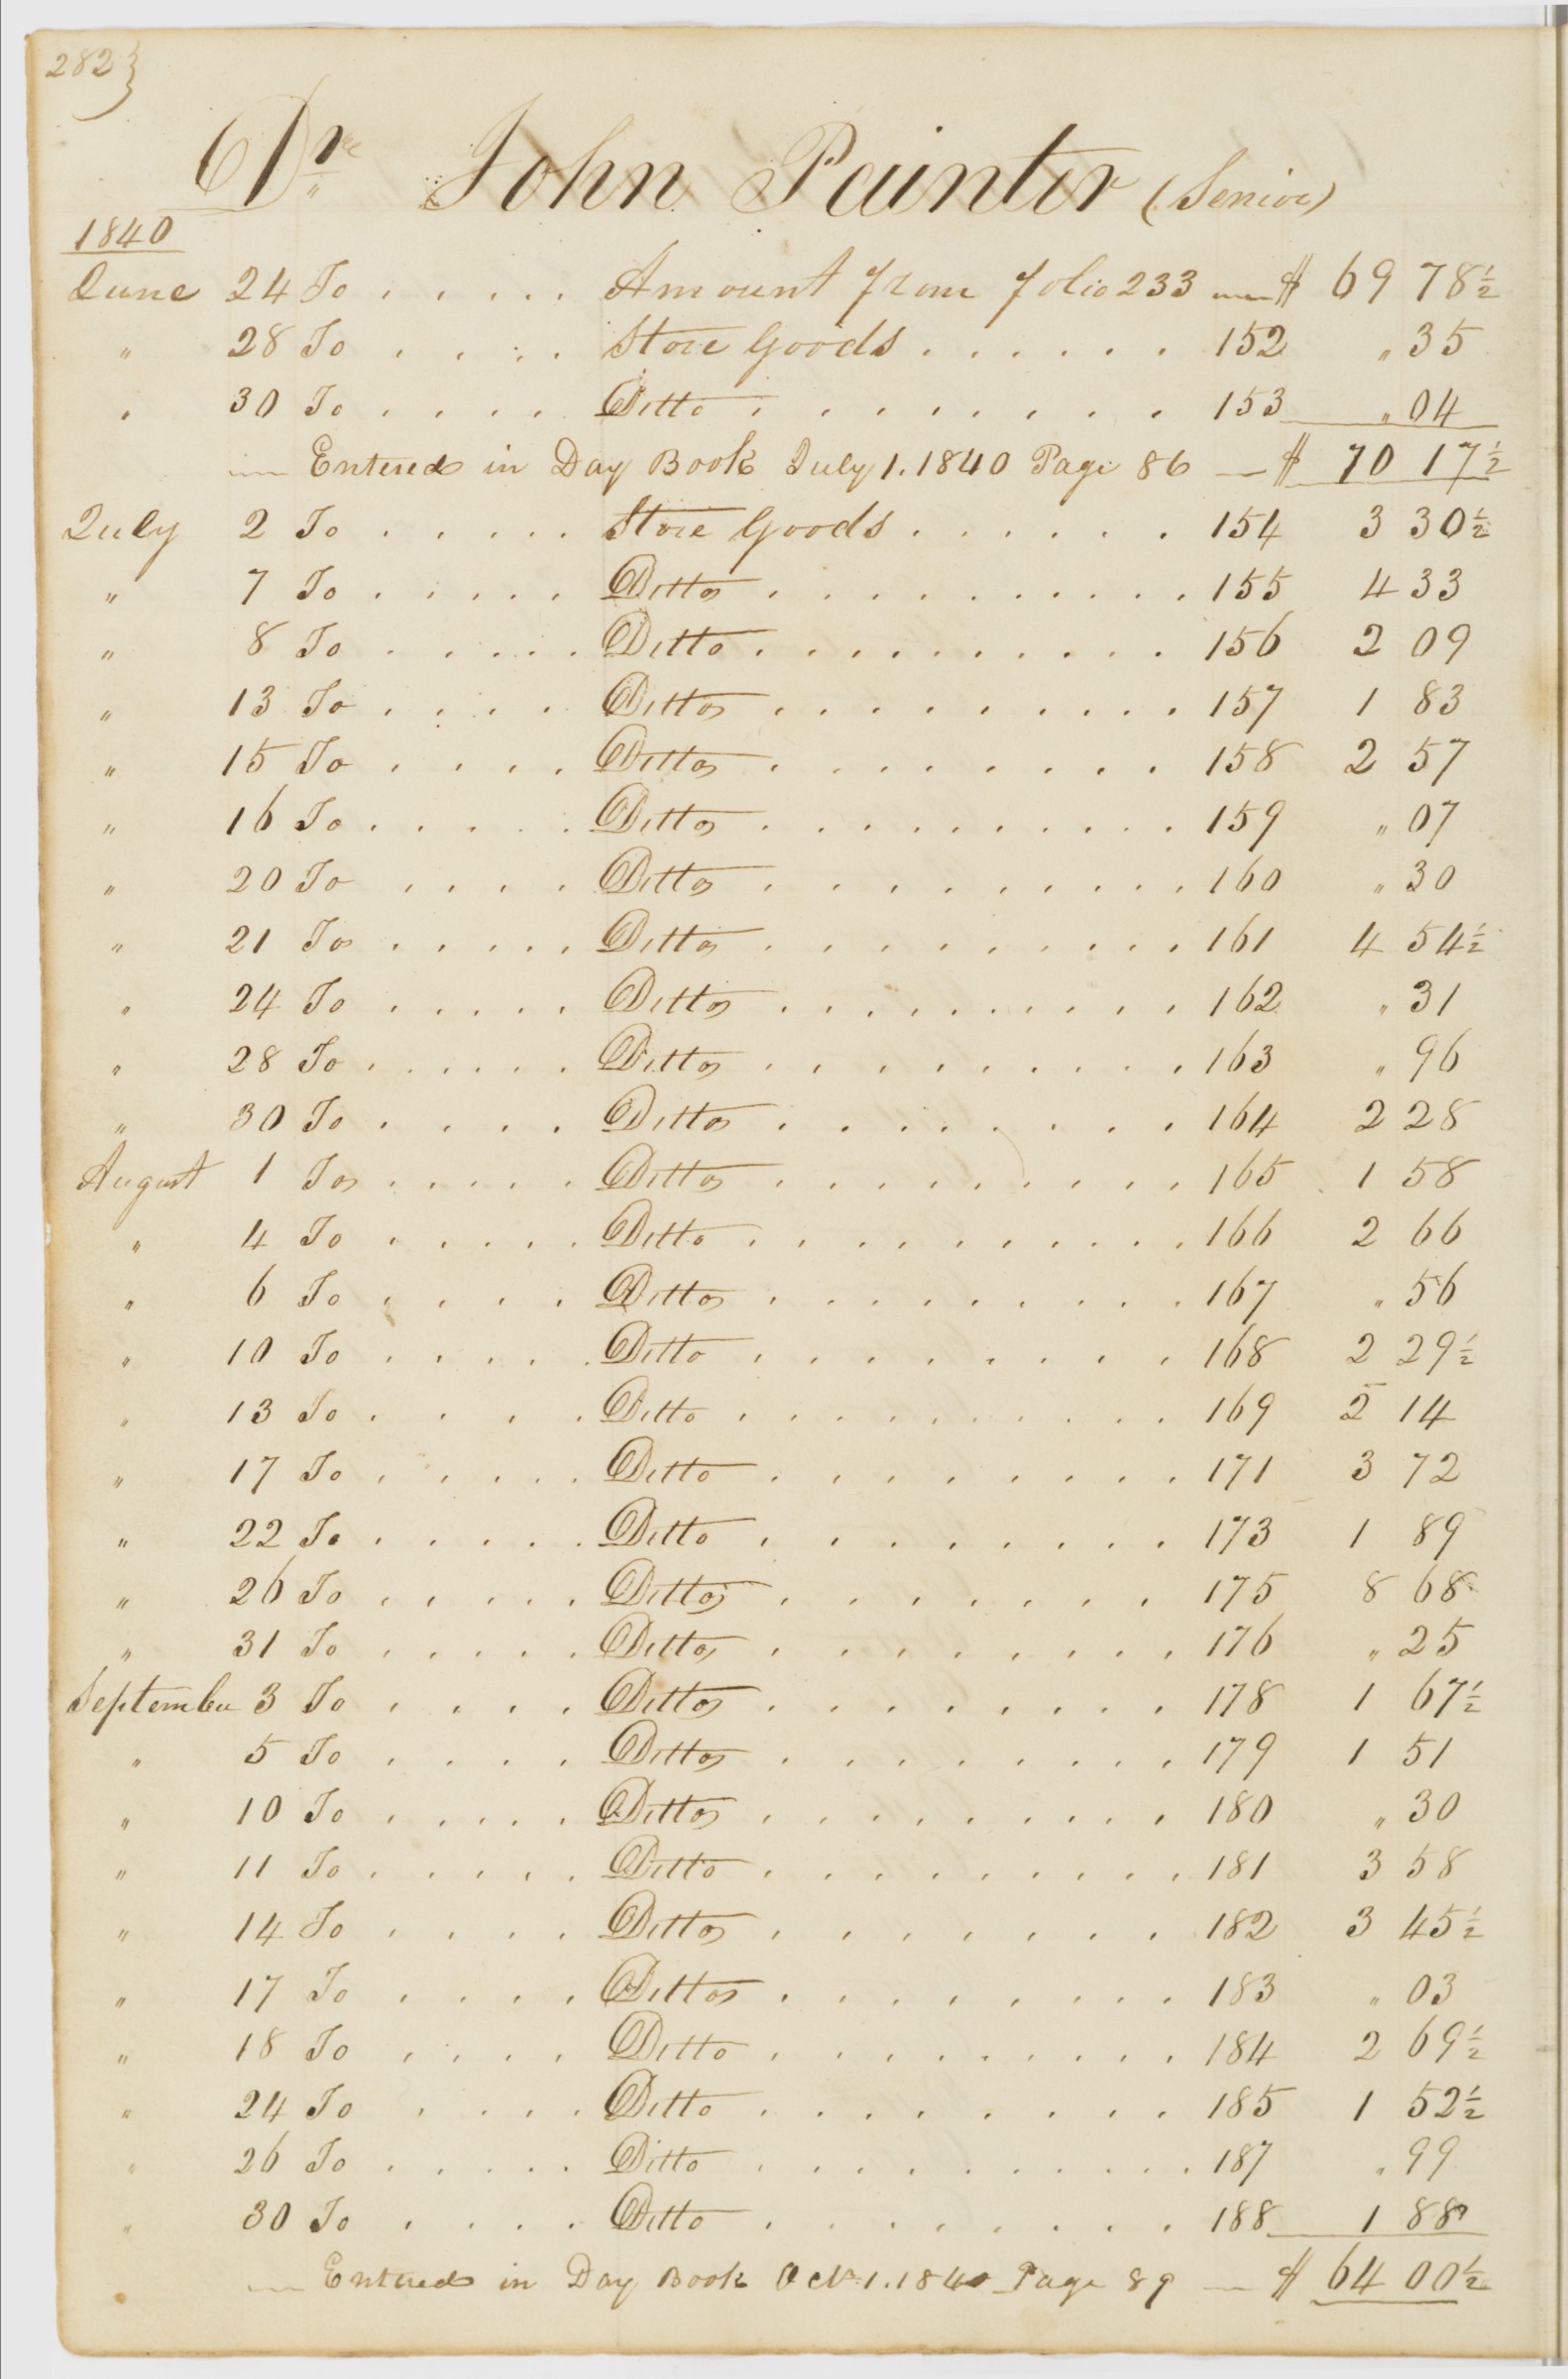 282}
Dr John Painter (Senior)
1840
June 24 To . . . . . Amount from folio 233 — $ 69 78½
" 28 To . . . . Store Goods . . . . . . 152 " 35
" 30 To . . . . Ditto . . . . . . . . 153 " 04
— Entered in Day Book July 1. 1840 Page 86 — $ 70 17½
July 2 To . . . . . Store Goods . . . . . . 154 3 30½
" 7 To . . . . . Ditto . . . . . . . . . . 155 4 33
" 8 To . . . . . Ditto . . . . . . . . . . 156 2 09
" 13 To . . . . Ditto . . . . . . . . . 157 1 83
" 15 To . . . . Ditto . . . . . . . . 158 2 57
" 16 To . . . . . Ditto . . . . . . . . . 159 " 07
" 20 To . . . . Ditto . . . . . . . . . 160 " 30
" 21 To . . . . . Ditto . . . . . . . . . 161 4 54½
" 24 To . . . . . Ditto . . . . . . . . . 162 " 31
" 28 To . . . . . Ditto . . . . . . . . . 163 " 96
" 30 To . . . . Ditto . . . . . . . . 164 2 28
August 1 To . . . . . Ditto . . . . . . . . . 165 1 58
" 4 To . . . . . Ditto . . . . . . . . . . 166 2 66
" 6 To . . . . Ditto . . . . . . . . . 167 " 56
" 10 To . . . . . Ditto . . . . . . . . 168 2 29½
" 13 To . . . . Ditto . . . . . . . . . 169 2 14
" 17 To . . . . . Ditto . . . . . . . . 171 3 72
" 22 To . . . . . Ditto . . . . . . . . 173 1 89
" 26 To . . . . . Ditto . . . . . . . 175 8 68
" 31 To . . . . . Ditto . . . . . . . . 176 " 25
September 3 To . . . . Ditto . . . . . . . . 178 1 67½
" 5 To . . . . Ditto . . . . . . . . 179 1 51
" 10 To . . . . . Ditto . . . . . . . . 180 " 30
" 11 To . . . . . Ditto . . . . . . . . . 181 3 58
" 14 To . . . . Ditto . . . . . . . 182 3 45½
" 17 To . . . . Ditto . . . . . . . . 183 " 03
" 18 To . . . . Ditto . . . . . . . . 184 2 69½
" 24 To . . . . Ditto . . . . . . . . 185 1 52½
" 26 To . . . . . Ditto . . . . . . . . . 187 " 99
" 30 To . . . . Ditto . . . . . . . . 188 1 88
— Entered in Day Book Octr. 1. 1840 Page 89 — $ 64 00½